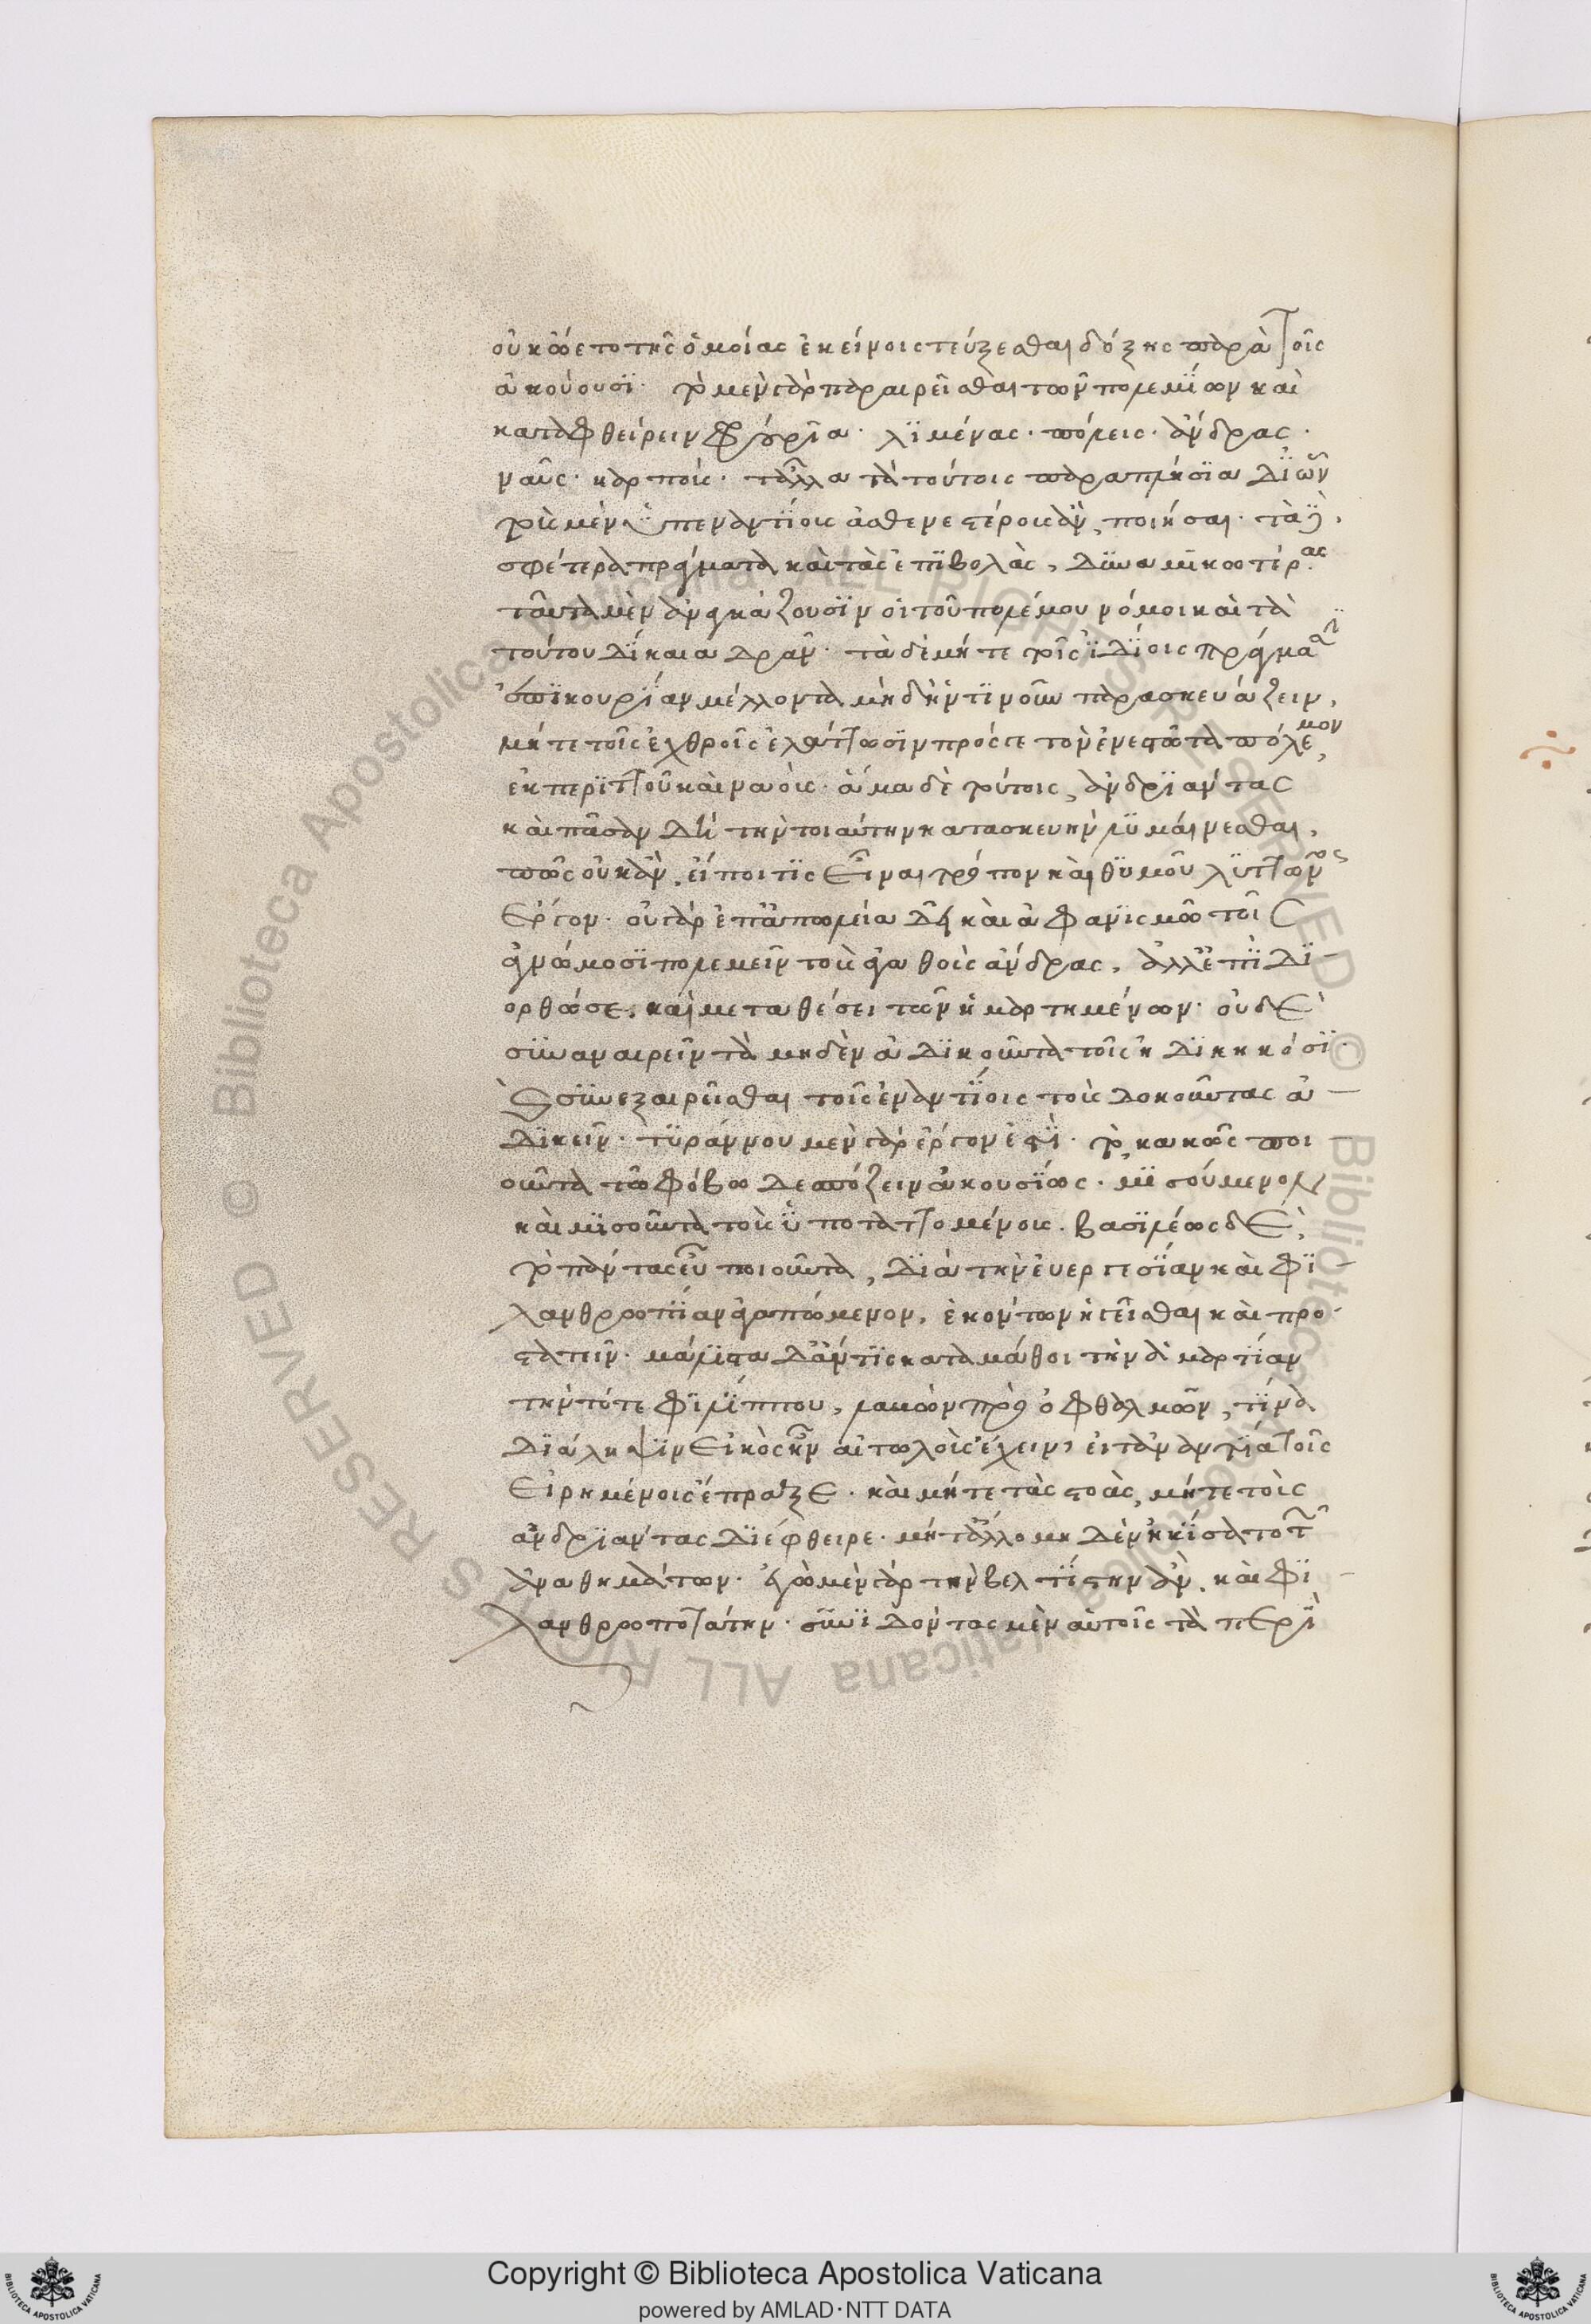 οὐκ ᾤετο τῆς ὁμοίας ἐκείνοις τεύξεσθαι δόξης παρὰ τοῖς
ἀκούουσι· τὸ μὲν γὰρ παραιρεῖσθαι τῶν πολεμίων καὶ
καταφθείρειν φρούρια· λιμένας· πόλεις· ἄνδρας·
ναῦς· καρπούς· τἄλλα τὰ τούτοις παραπλήσια δι' ὧν
τοὺς μὲν ὑπεναντίους ἀσθενεστέρους ἄν ποιήσαι· τὰ
σφέτερα πράγματα καὶ τὰς ἐπιβολὰς, δυναμικωτέρας
ταῦτα μὲν ἀναγκάζουσιν οἱ τοῦ πολέμου νόμοι καὶ τὰ
τούτου δίκαια δρᾶν· τὰ δὲ μήτε τοῖς ἰδίοις πράγμασι
ἐπικουρίαν μέλλοντα μηδ' ἡντινοῦν παρασκευάζειν,
μήτε τοῖς ἐχθροῖς ἐλάττωσιν πρός γε τὸν ἐνεστῶτα πόλεμον
ἐκ περιττοῦ καὶ ναοὺς· ἅμα δὲ τούτοις, ἀνδριάντας
καὶ πᾶσαν δὴ τὴν τοιαύτην κατασκευὴν λυμαίνεσθαι,
πῶς οὐκ ἄν εἴποι τις εἶναι τρόπου καὶ θυμοῦ λυττῶντος
ἔργον· οὐ γὰρ ἐπ' ἀπωλείᾳ δεῖ καὶ ἀφανισμῷ τοῖς
ἀγνώμοσι πολεμεῖν τοὺς ἀγαθοὺς ἄνδρας, ἀλλ' ἐπὶ δι
ορθώσει καὶ μεταθέσει τῶν ἡμαρτημένων· οὐδὲ
συναναιρεῖν τὰ μηδὲν ἀδικοῦντα τοῖς ἠδικηκόσι·
συνεξαιρεῖσθαι τοῖς ἐναντίοις τοὺς δοκοῦντας ἀ
δικεῖν· τυράννου μὲν γὰρ ἔργον ἐστὶ· τὸ κακῶς ποι
οῦντα τῷ φόβῳ δεσπόζειν ἀκουσίως· μισούμενον
καὶ μισοῦντα τοὺς ὑποταττομένους· βασιλέως δὲ,
τὸ πάντας εὖ ποιοῦντα, διὰ τὴν εὐεργεσίαν καὶ φι
λανθρωπίαν ἀγαπώμενον, ἑκόντων ἡγεῖσθαι καὶ προ
στατεῖν· μάλιστα δ' ἄν τις καταμάθοι τὴν ἁμαρτίαν
τὴν τότε φιλίππου, λαμβάνων πρὸ ὀφθαλμῶν, τίνα
διάληψιν εἰκὸς ἦν αἰτωλοὺς ἔχειν, εἰ τἀναντία τοῖς
εἰρημένοις ἔπραξε· καὶ μήτε τὰς στοὰς, μήτε τοὺς
ἀνδριάντας διέφθειρε· μήτ' ἄλλο μηδὲν ᾐκίσατο τῶν
ἀναθημάτων· ἐγὼ μὲν γὰρ τὴν βελτίστην ἄν καὶ φι
λανθρωποτάτην· συνειδότας μὲν αὑτοῖς τὰ περὶ
Copyright © Biblioteca Apostolica Vaticana
powered by AMLAD·NTT DATA